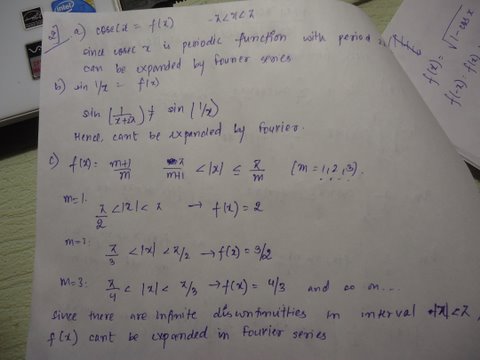 a) cosec x = f(x) -π<x<π
since cosec x is periodic function with period 2π
can be expanded by fourier series
b) sin 1/x = f(x)
sin (1/x+2π) ≠ sin (1/x)
Hence, cant be expanded by Fourier.
c) f(x) = m+1/m π/m+1 < |x| ≤ π/m [m = 1, 2, 3).
m=1. π/2 < |x| < π → f(x) = 2
m=2: π/3 < |x| < π/2 → f(x) = 3/2
m=3: π/4 < |x| < π/3 → f(x) = 4/3 and so on...
since there are infinite discontinuities in interval |x|<π,
f(x) cant be expanded in Fourier series
f(x) = √1-cos x
f(-x) = f(x)